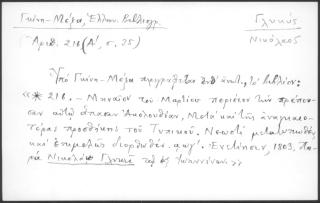 Γκίνη - Μέξα, Ἑλλην. Βιβλιογρ.
Γλυκύς
Ἀριθ. 216 (Α', σ. 35)
Νικόλαος
Ὑπὸ Γκίνη - Μέξα περιγράφεται τὸ βιβλίον:
«* 216. – Μηναῖον τοῦ Μαρτίου περιέχον τὴν πρέπου-
σαν αὐτῷ ἅπασαν Ἀκολουθίαν, Μετὰ καὶ τῆς ἀναγκαιο-
τέρας προσθήκης τοῦ Τυπικοῦ. Νεωστὶ μετατυπωθὲν
καὶ ἐπιμελῶς διορθωθέν. αωγ'. Ἐνετίησιν, 1803. Πα-
ρὰ Νικολάῳ Γλυκεῖ τῷ ἐξ Ἰωαννίνων.»